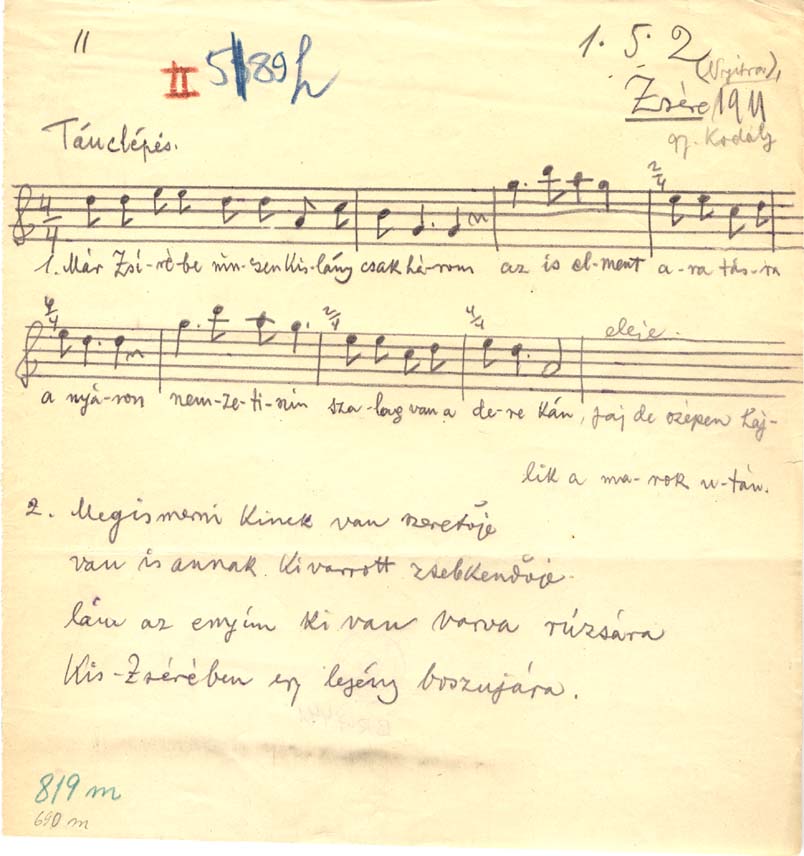 11
II 5189h
1. 5. 2
(Nyitra),
Zsére 1911
gy. Kodály
Tánclépés.
4/4 2/4
1. Már Zsí-ré-be nin-sen kis-lány csak há-rom az is el-ment a-ra-tás-ra
4/4 2/4 4/4 eleje.
a nyá-ron nem-ze-ti-nin sza-lag van a de-re kán, jaj de szépen haj-
lik a ma-rok u-tán.
2. Megismerni kinek van szeretője
van is annak kivarrott zsebkendője
lám az enyím ki van varva rúzsára
Kis-Zsérében egy legény boszujára.
819 m
690 m